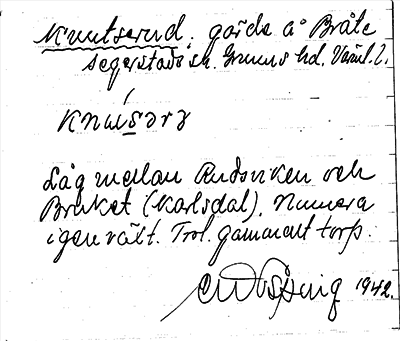 Knutserud, gärde å Bråte
Segerstads sn. Grums hd. Värml. l.
knusərɜ
Låg mellan Åndsviken och
Bruket (Karlsdal). Numera
igenväxt. Trol. gammalt torp.
1942.